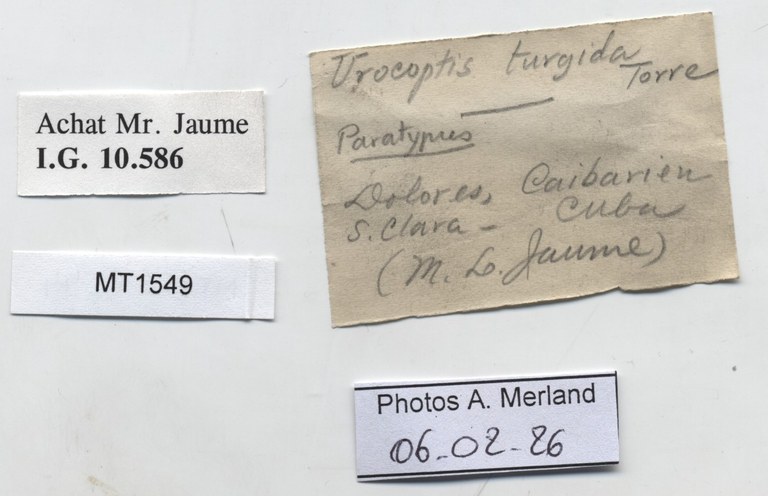 Achat Mr. Jaume
I.G. 10.586
MT1549
Urocoptis turgida
Torre
Paratypus
Dolores, Caibarien
S. Clara - Cuba
(M. L. Jaume)
Photos A. Merland
06-02-26